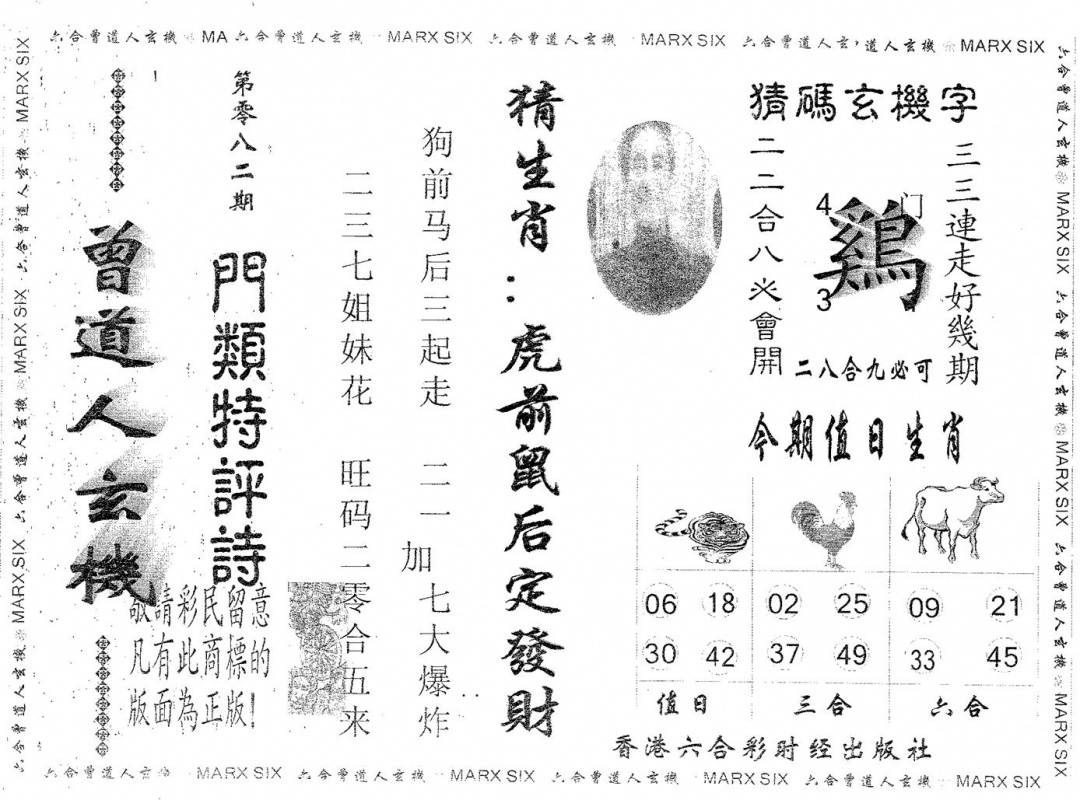 六合曾道人玄機 MA 六合曾道人玄機 MARX SIX 六合曾道人玄機 MARX SIX 六合曾道人玄,道人玄機 MARX SIX
六合曾道人玄機 MARX SIX 六合曾道人玄機 MARX SIX 六合曾道人玄機 MARX SIX
曾道人玄機
第零八二期
門類特評詩
敬請彩民留意
凡有此商標的
版面為正版!
狗前马后三起走 二一加七大爆炸
二三七姐妹花 旺码二零合五来
猜生肖:虎前鼠后定發財
猜碼玄機字
三三連走好幾期
二二合八必會開
4 门
鷄
3
二八合九必可
今期值日生肖
06 18 02 25 09 21
30 42 37 49 33 45
值日 三合 六合
香港六合彩时经出版社
六合曾道人玄機 MARX SIX 六合曾道人玄機 MARX SIX 六合曾道人玄機 MARX SIX
六合曾道人玄 MARX SIX 六合曾道人玄機 MARX SIX 六合曾道人玄機 MARX SIX 六合曾道人玄機 MARX SIX